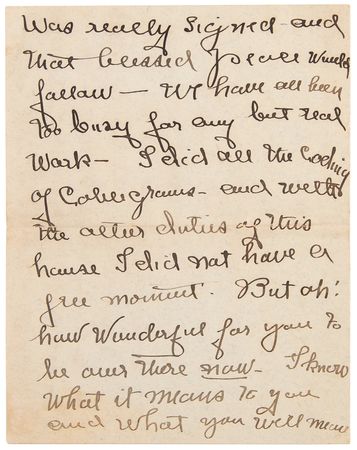 Was really signed and
that blessed peace would
follow — We have all been
too busy for any but real
work — I did all the Coding
of Cablegrams — and with
the other duties of this
house I did not have a
free moment. But oh!
how wonderful for you to
be over there now — I know
What it means to you
and what you will mean